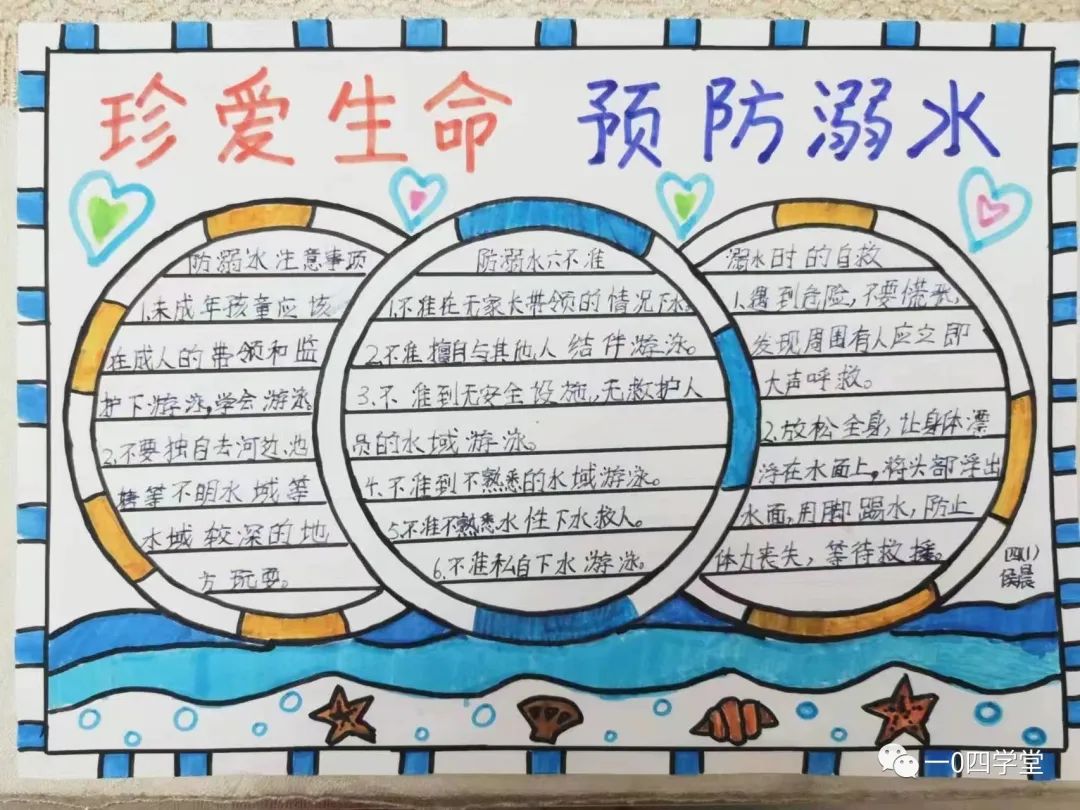 珍爱生命 预防溺水
防溺水注意事项
1.未成年孩童应该
在成人的带领和监
护下游泳,学会游泳。
2.不要独自去河边、池
塘等不明水域等
水域较深的地
方玩耍。
防溺水六不准
1.不准在无家长带领的情况下水。
2.不准擅自与其他人结伴游泳。
3.不准到无安全设施,无救护人
员的水域游泳。
4.不准到不熟悉的水域游泳。
5.不准不熟悉水性下水救人。
6.不准私自下水游泳。
溺水时的自救
1.遇到危险,不要慌张,
发现周围有人应立即
大声呼救。
2.放松全身,让身体漂
浮在水面上,将头部浮出
水面,用脚踢水,防止
体力丧失,等待救援。
四(1)
侯晨
一0四学堂